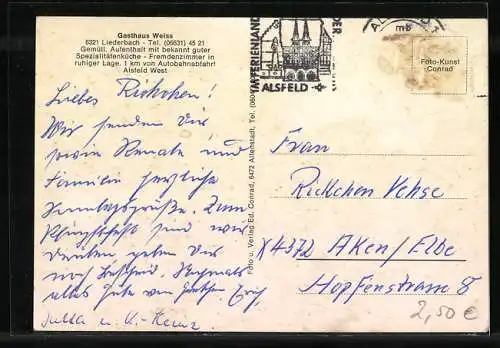 Gasthaus Weiss
6321 Liederbach - Tel. (06631) 45 21
Gemütl. Aufenthalt mit bekannt guter
Spezialitätenküche - Fremdenzimmer in
ruhiger Lage. 1 km von Autobahnabfahrt
Alsfeld West
IM FERIENLAND
DER
ALSFELD
mb
Foto-Kunst
Conrad
Foto u. Verlag Ed. Conrad, 6472 Altenstadt, Tel. (060
Liebes Rickchen!
Wir senden Dir
sowie Renate und
Familie herzliche
Sonntagsgrüße. Zum
Pfingstfest sind wir
geben Dir
noch Bescheid. Nochmals
alles Gute von Erich,
Jutta u. K.-Heinz.
Frau
Rickchen Vehse
X4372 Aken/Elbe
Hopfenstrasse 8
2,50 €